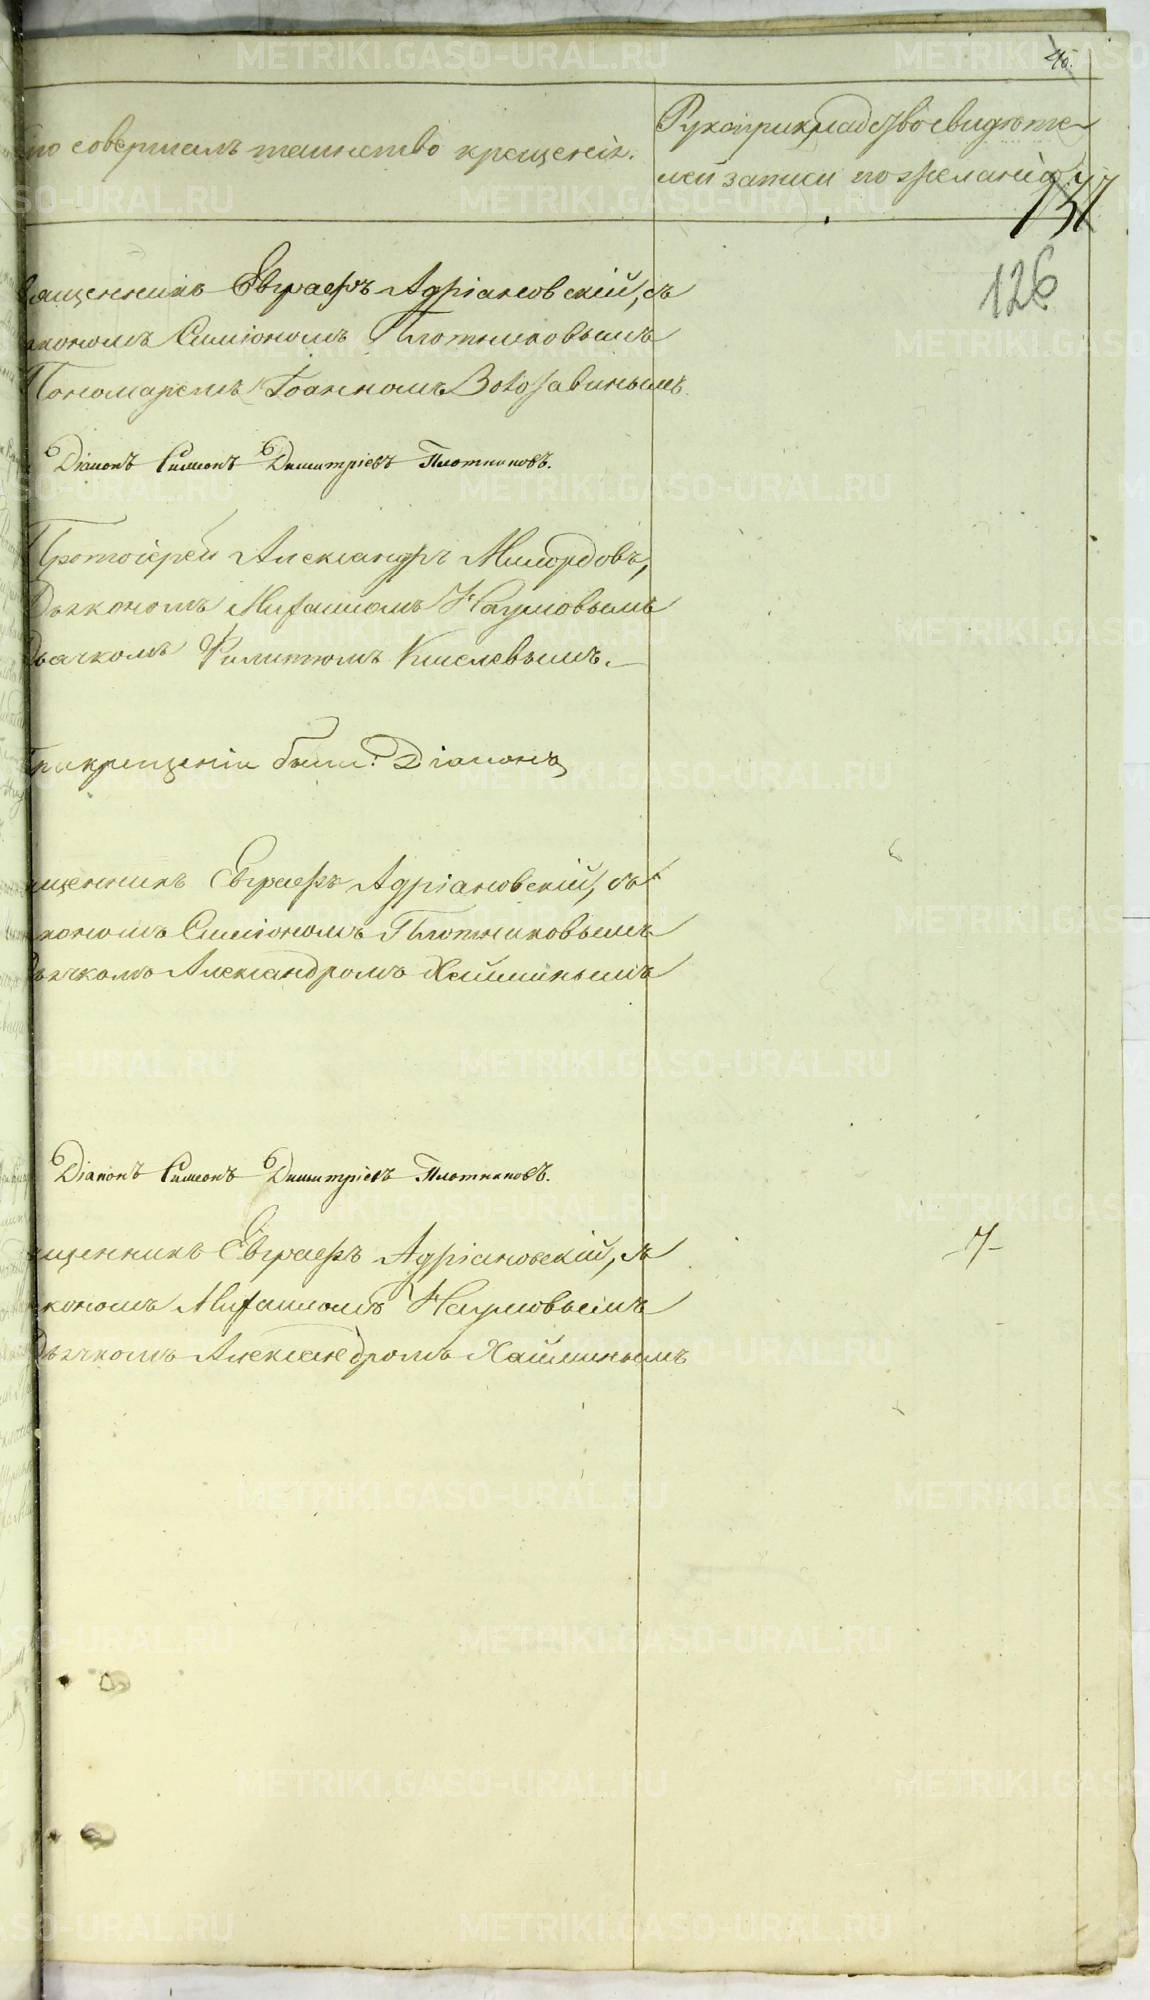 40.
то совершалъ таинство крещенія.
Рукоприкладство свидѣте-
лей записи по желанію
137
126
ященникъ Евграфъ Адріановскій, съ
акономъ Симіономъ Плотниковымъ
Пономаремъ Іоанномъ
Діаконъ Симеонъ Димитріевъ Плотниковъ.
Протоіерей Александръ Милордовъ,
Дьякономъ Михаиломъ Наумовымъ
Дьячкомъ Филиппомъ Киселевымъ.
При крещеніи были: Діаконъ
щенникъ Евграфъ Адріановскій, съ
кономъ Симіономъ Плотниковымъ
Дьячкомъ Александромъ Хайминымъ
Діаконъ Симеонъ Димитріевъ Плотниковъ.
щенникъ Евграфъ Адріановскій, съ
кономъ Михаиломъ Наумовымъ
Дьячкомъ Александромъ Хайминымъ
METRIKI.GASO-URAL.RU